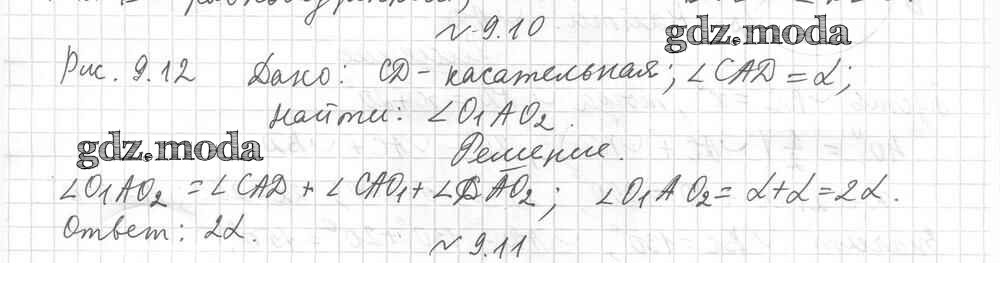 № 9.10
gdz.moda
Рис. 9.12 Дано: CD - касательная; ∠CAD = α;
Найти: ∠O₁AO₂.
gdz.moda
Решение.
∠O₁AO₂ = ∠CAD + ∠CAO₁ + ∠DAO₂; ∠O₁AO₂ = α + α = 2α.
Ответ: 2α.
№ 9.11